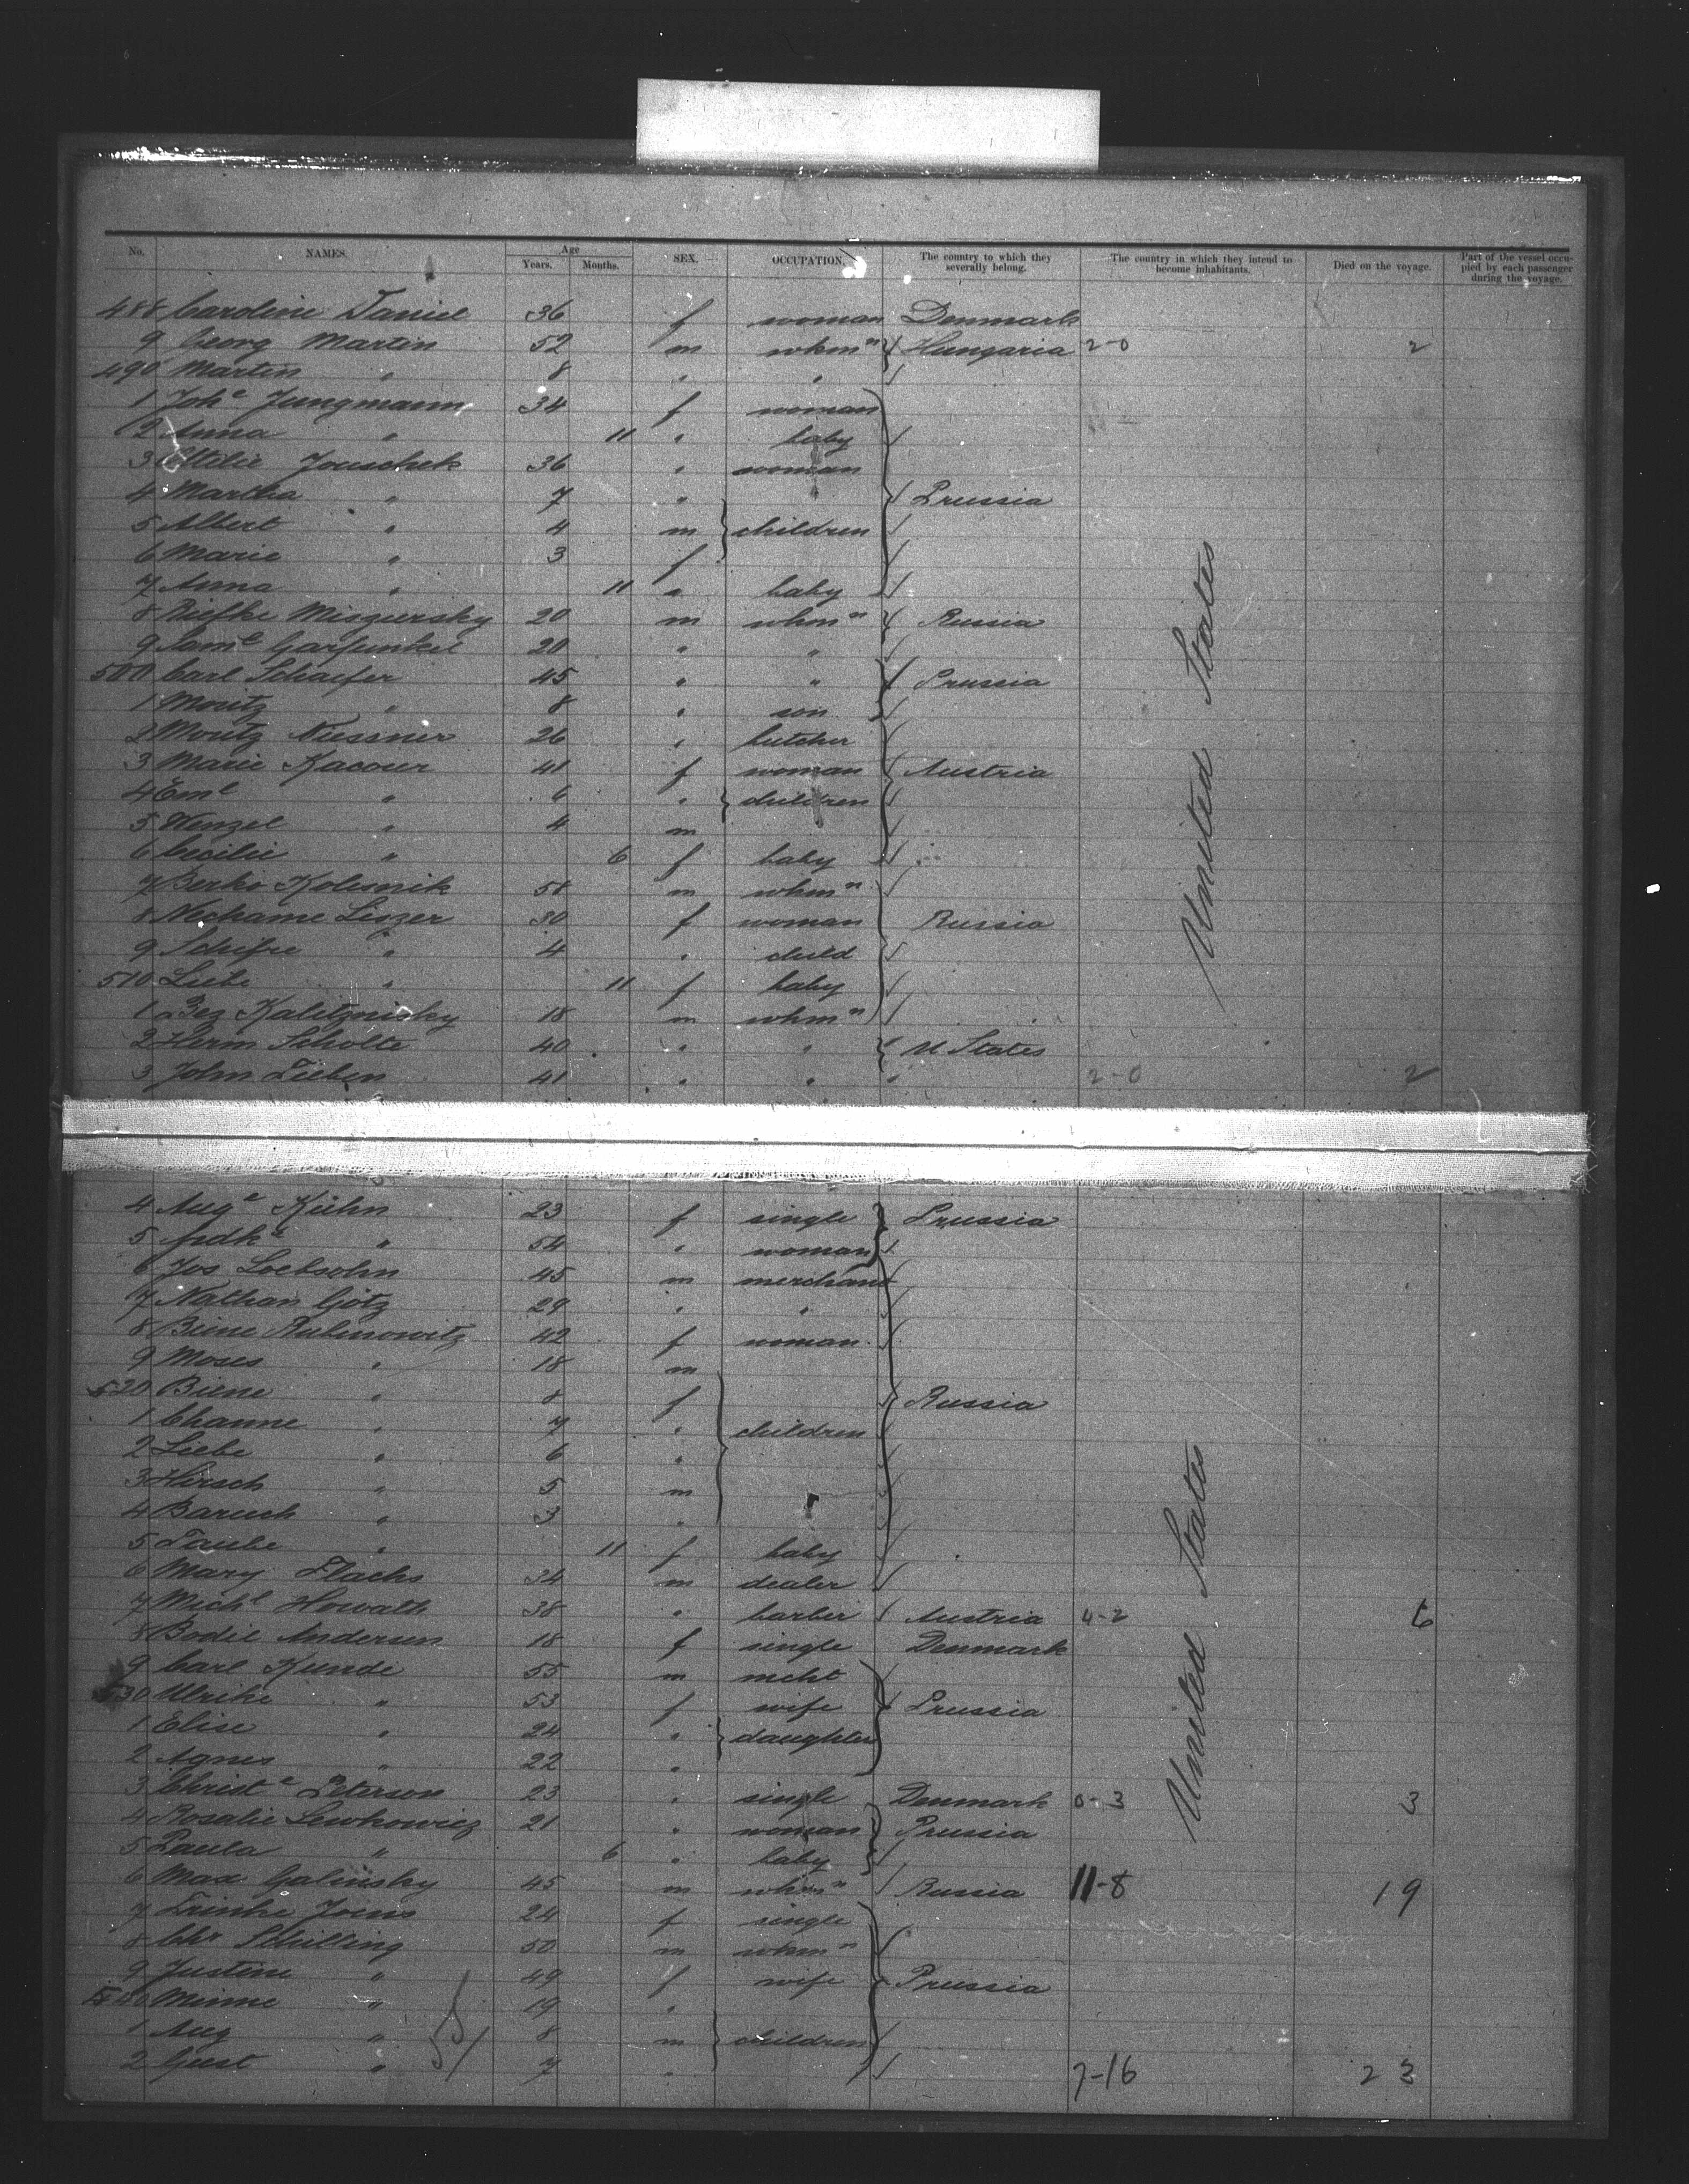 No. NAMES. Age Years. Months. SEX. OCCUPATION. The country to which they severally belong. The country in which they intend to become inhabitants. Died on the voyage. Part of the vessel occupied by each passenger during the voyage.
488 Caroline Daniel 36 f woman Denmark
9 Georg Martin 52 m wkmn Hungaria 2-0 2
490 Martin " 8 " "
1 Johe Jungmann 34 f woman
2 Anna " 11 " baby
3 Ottilie Jouschek 36 " woman
4 Martha " 7 " Prussia
5 Albert " 4 m children
6 Marie " 3 f
7 Anna " 11 " baby
8 Riefke Miszursky 20 m wkmn Russia
9 Saml Garfunkel 20 " "
500 Carl Schaefer 45 " " Prussia
1 Moritz " 8 " son
2 Moritz Nussner 26 " butcher
3 Marie Kacour 41 f woman Austria
4 Eml " 6 " children
5 Wenzel " 4 m
6 Cecilie " 6 f baby
7 Berko Kolesnik 58 m wkmn
8 Nechame Liszer 30 f woman Russia
9 Schifre " 4 " child
510 Liebe " 11 f baby
1 Bez Kalitznisky 18 m wkmn
2 Herm Scholte 40 " " U States
3 John Lieben 41 " " " 2-0 2
United States
4 Auge Kühn 23 f single Prussia
5 Frdke " 54 " woman
6 Jos Loebsohn 45 m merchant
7 Nathan Götz 29 " "
8 Biene Rubinowitz 42 f woman
9 Moses " 18 m
520 Biene " 8 f Russia
1 Channe " 7 " children
2 Liebe " 6 "
3 Hirsch " 5 m
4 Baruch " 3 "
5 Taube " 11 f baby
6 Mary Flachs 34 m dealer
7 Michl Howath 38 " barber Austria 4-2 6
8 Bodil Andersen 18 f single Denmark
9 Carl Kunde 55 m mcht
530 Ulrike " 53 f wife Prussia
1 Elise " 24 " daughter
2 Agnes " 22 "
3 Christe Peterson 23 " single Denmark 0-3 3
4 Rosalie Lewkowicz 21 " woman Prussia
5 Paula " 6 " baby
6 Max Galinsky 45 m wkmn Russia 11-8 19
7 Trinke Joens 24 f single
8 Chr Schilling 50 m wkmn
9 Justine " 49 f wife Prussia
540 Minne " 19 "
1 Aug " 8 m children
2 Gust " 7 " 7-16 23
United States